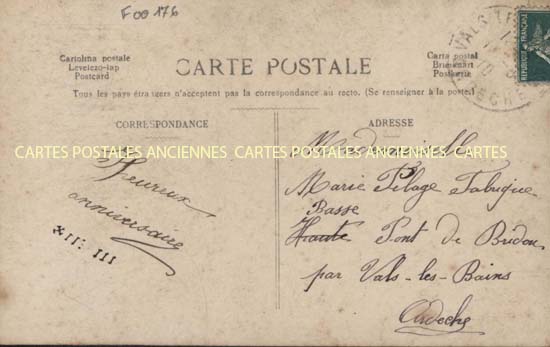 F00176
Cartolina postale
Levelezo-lap
Postcard
CARTE POSTALE
Carta postal
Briefkaart
Postkarte
Tous les pays étrangers n'acceptent pas la correspondance au recto. (Se renseigner à la poste)
CORRESPONDANCE
ADRESSE
CARTES POSTALES ANCIENNES CARTES POSTALES ANCIENNES CARTES
Heureux
anniversaire
Mademoiselle
Marie Filage Fabrique
Basse
Haute Pont de Bridou
par Vals-les-Bains
Ardèche
REPUBLIQUE FRANÇAISE